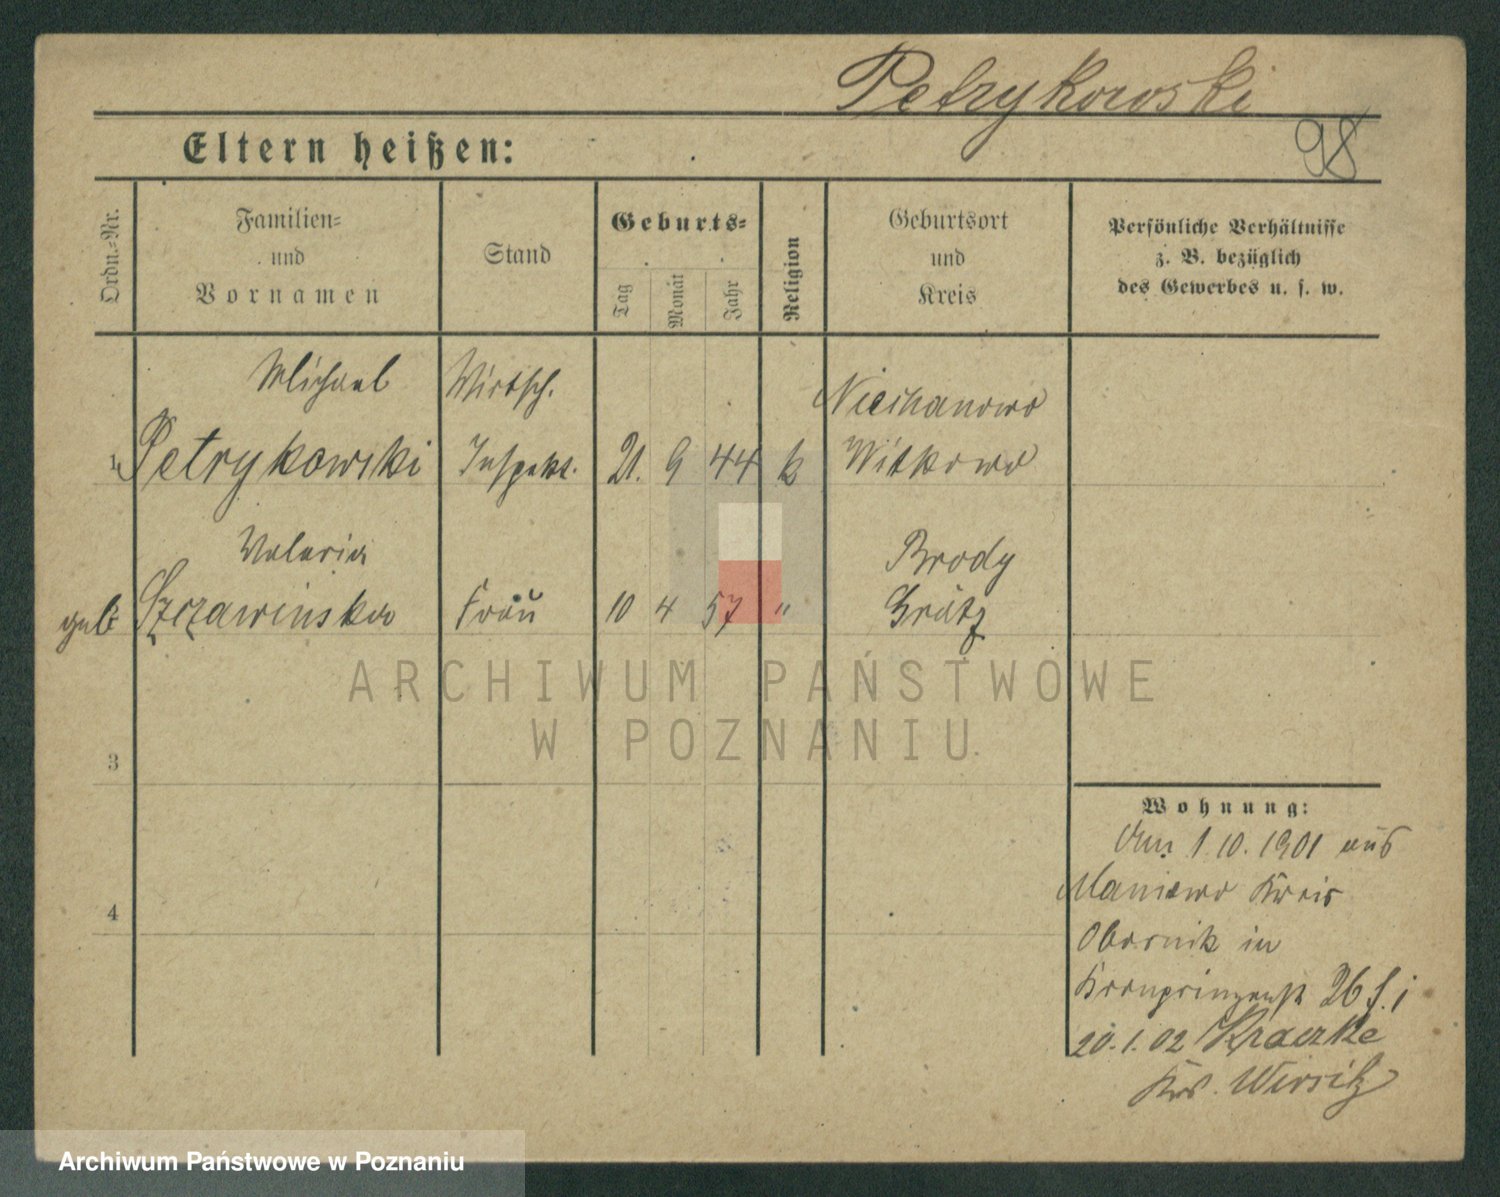 Petrykowski
98
Eltern heißen:
Ordn.-Nr.
Familien-
und
Vornamen
Stand
Geburts-
Tag
Monat
Jahr
Religion
Geburtsort
und
Kreis
Persönliche Verhältnisse
z. B. bezüglich
des Gewerbes u. s. w.
Michael Wirtsch. Niechanowo
1 Petrykowski Inspekt. 21. 9 44 k Witkowo
Valeria Brody
geb Szczawinska Frau 10 4 57 " Grätz
ARCHIWUM PAŃSTWOWE
W POZNANIU
3
4
Wohnung:
Am 1.10.1901 aus
Maniewo Kreis
Obornik in
Kronprinzenstr 26 f. i
20.1.02 Kraczke
Krs. Wirsitz
Archiwum Państwowe w Poznaniu